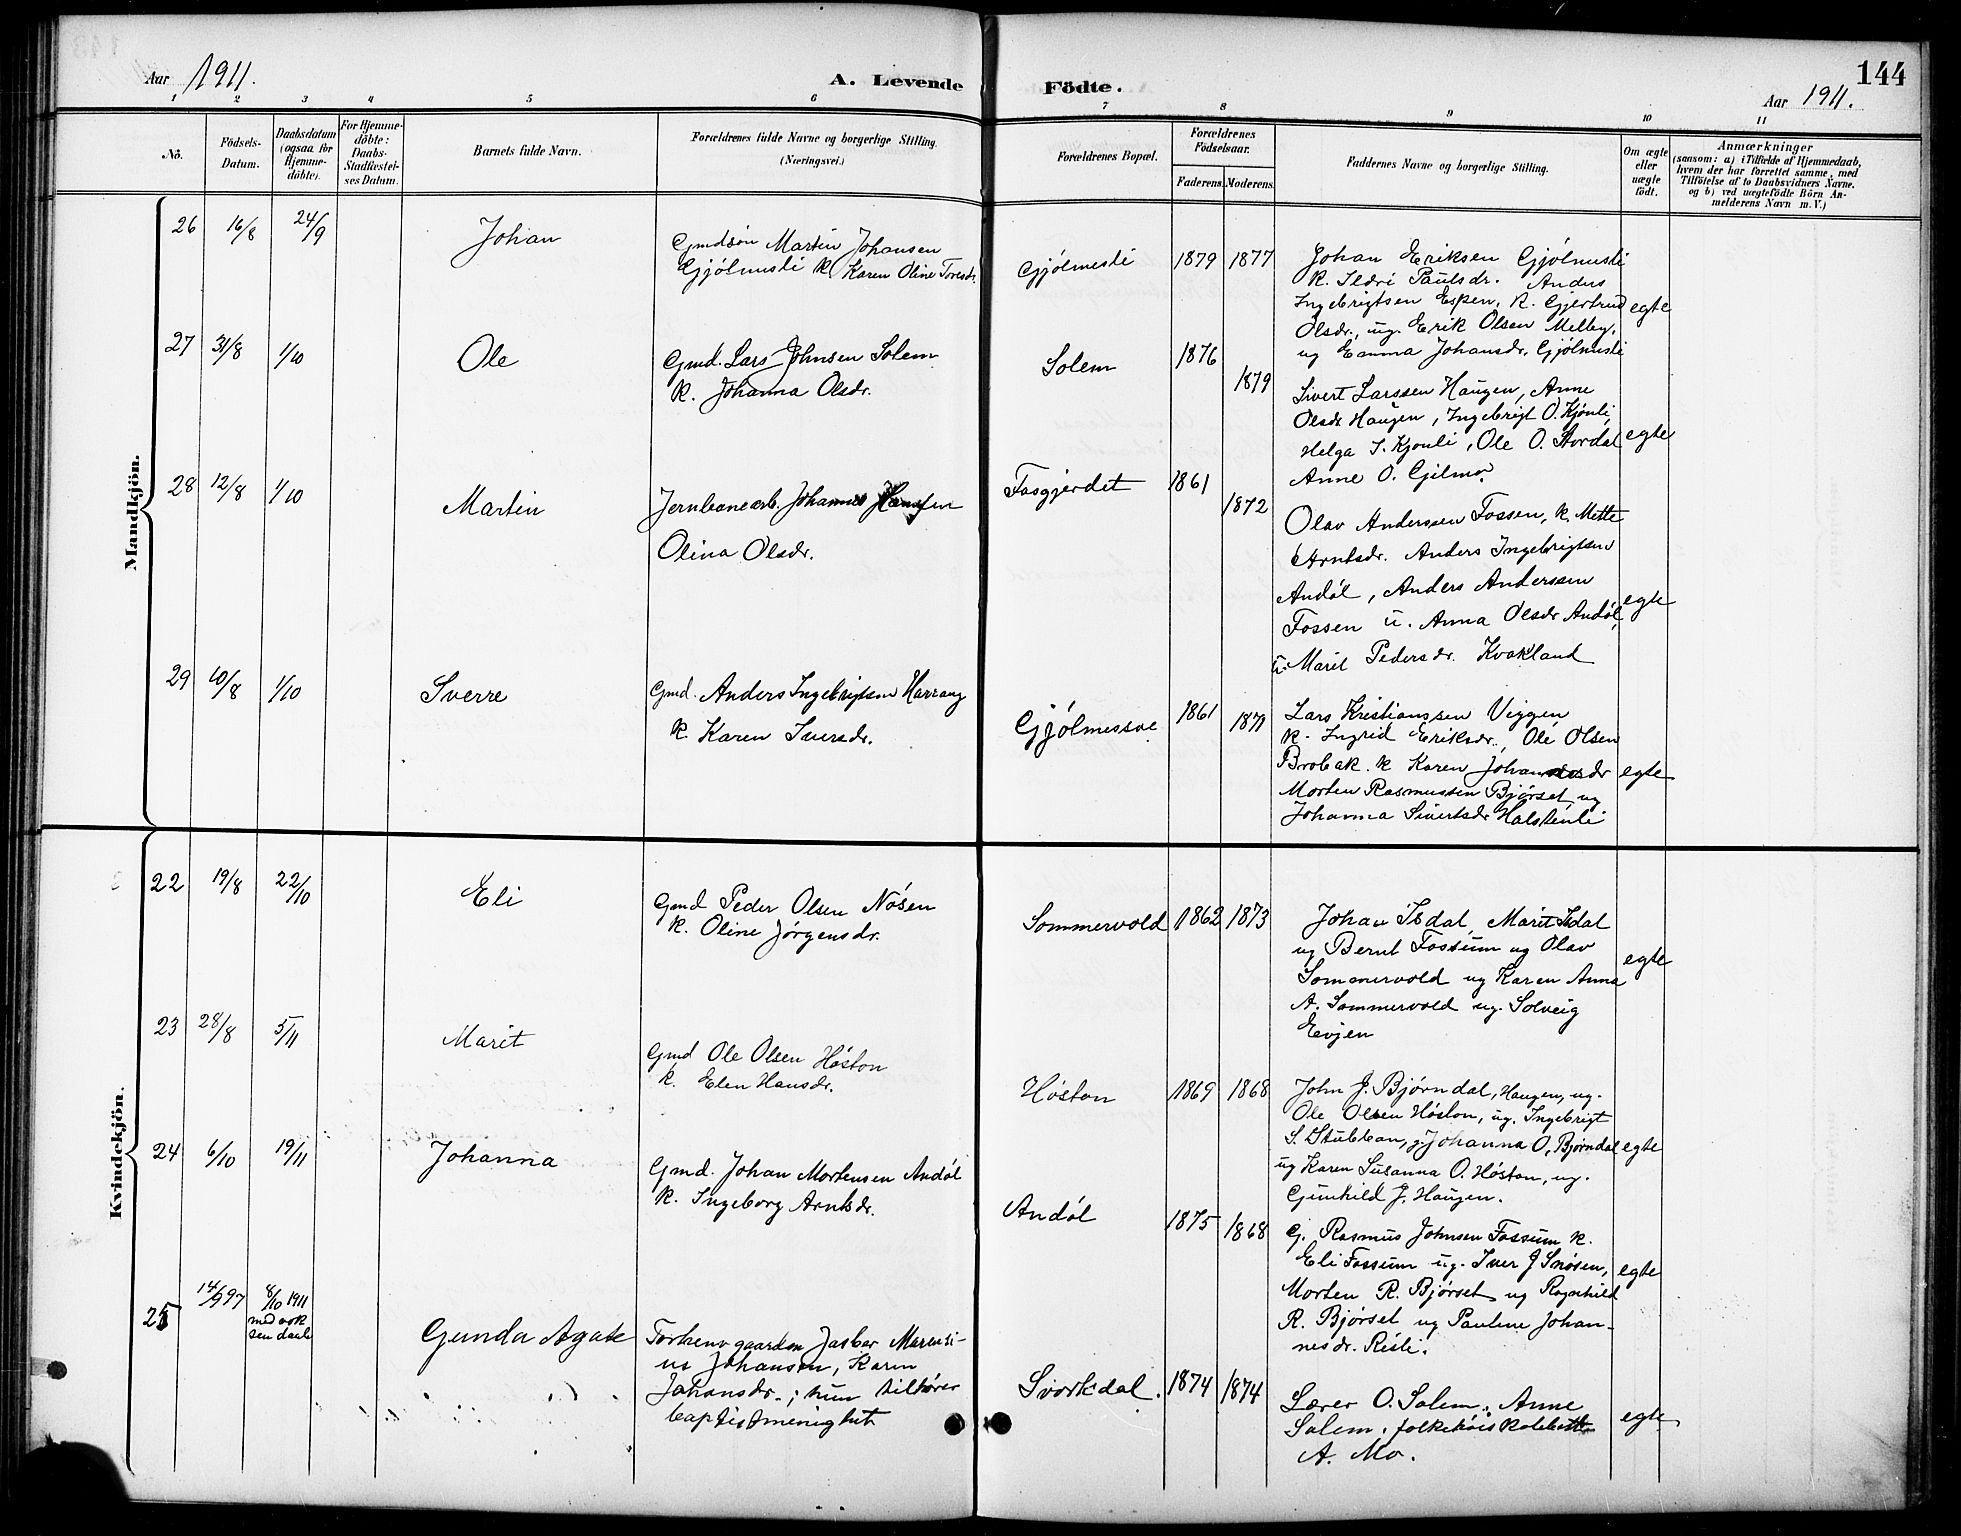 Aar 1911.
A. Levende Födte.
144
Aar 1911.
1 2 3 4 5 6 7 8 9 10 11
No.
Födsels-Datum.
Daabsdatum (ogsaa for Hjemme-döbte).
For Hjemme-döbte: Daabs-Stadfæstel-ses Datum.
Barnets fulde Navn.
Forældrenes fulde Navne og borgerlige Stilling. (Næringsvei.)
Forældrenes Bopæl.
Forældrenes Födselsaar.
Faderens. Moderens.
Faddernes Navne og borgerlige Stilling.
Om ægte eller uægte födt.
Anmærkninger
(saasom: a) i Tilfælde af Hjemmedaab,
hvem der har forrettet samme, med
Tilföielse af to Daabsvidners Navne.
og b) ved uægtefödte Börn An-
melderens Navn m. V.)
Mandkjön.
26 16/8 24/9 Johan
Gmdsön Martin Johansen
Gjólmesli k Karen Oline Toresdr.
Gjólmesli 1879 1877
Johan Eriksen Gjólmesli
k. Sedri Paulsdr. Anders
Ingebrigtsen Espen, k. Gjertrud
Olsdr., ug. Erik Olsen Melby,
ug Emma Johansdr. Gjólmesli
egte
27 31/8 1/10 Ole
Gmd. Lars Johnsen Solem
k. Johanna Olsdr.
Solem 1876 1879
Sivert Larssen Haugen, Anne
Olsdr Haugen, Ingebrigt O. Kjónli,
Helga I. Kjonli, Ole O. Stordal
Anne O. Gjilmo.
egte
28 12/8 1/10 Martin
Jernbanearb. Johannes Hansen
Olina Olsdr.
Fosgjerdet 1861 1872
Olav Anderssen Fossen, k. Mette
Arntsdr. Anders Ingebrigtsen
Andól, Anders Anderssen
Fossen u. Anna Olsdr Andól,
u. Marit Pedersdr. Kvakland
egte
29 10/8 1/10 Sverre
Gmd. Anders Ingebrigtsen Harrang
k. Karen Iversdr.
Gjólmesve 1861 1871
Lars Kristianssen Viggen
k. Ingrid Eriksdr., Ole Olsen
Brobak. k Karen Johannesdr
Morten Rasmussen Bjórset ug
Johanna Sivertsdr Halstenli
egte
Kvindekjön.
22 19/8 22/10 Eli
Gmd Peder Olsen Nósen
k. Oline Jórgensdr.
Sommervold 1862 1873
Johan Isdal, Marit Isdal
ug Bernt Fossum ug Olav
Sommervold ug Karen Anna
A. Sommervold ug. Solveig
Evjen
egte
23 28/8 5/11 Marit
Gmd Ole Olsen Hóston
k. Elen Hansdr.
Hóston 1869 1868
John J. Bjórndal, Haugen, ug.
Ole Olsen Hóston, ug. Ingebrigt
S. Stubban, g. Johanna O. Bjorndal
ug Karen Susanna O. Hóston, ug.
Gunhild J. Haugen.
egte
24 6/10 19/11 Johanna
Gmd. Johan Mortensen Andól
k. Ingeborg Arntsdr.
Andól 1875 1868
G. Rasmus Johnsen Fossum k.
Eli Fossum ug. Iver J Snósen,
Morten R. Bjórset ug Ragnhild
R. Bjórset ug Pauline Johan-
nesdr. Risli.
egte
25 14/9 97 8/10 1911
med vok
sen daab
Gunda Agate
Forhenv gaardm Jasbar Marensi-
us Johansen, Karen
Johansdr.; hun tilhórer
baptistmenighet
Svorkdal. 1874 1874
Lærer O. Solem, Anne
Solem, folkehóiskolebest
A. Mo.
egte